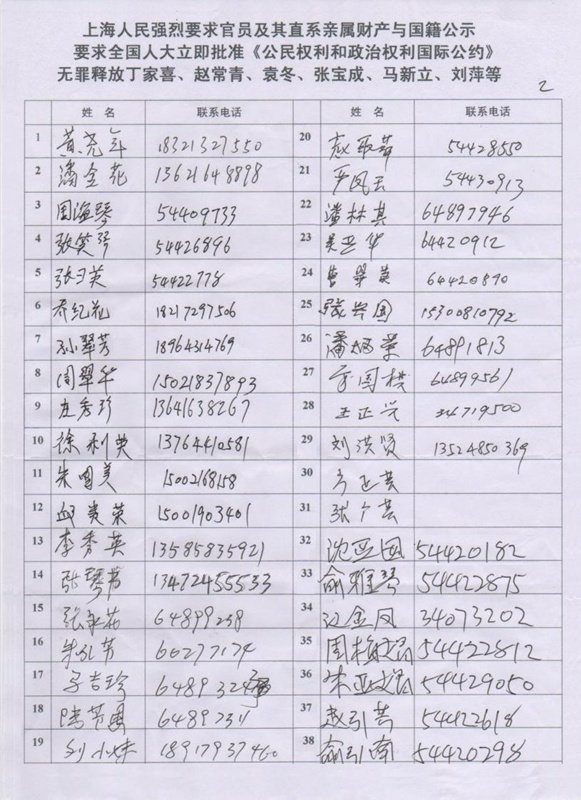 上海人民强烈要求官员及其直系亲属财产与国籍公示
要求全国人大立即批准《公民权利和政治权利国际公约》
无罪释放丁家喜、赵常青、袁冬、张宝成、马新立、刘萍等
2
姓 名 联系电话 姓 名 联系电话
1 黄尧年 18321327550 20 54428550
2 潘金花 13621648898 21 严凤云 54430913
3 周海琴 54409733 22 潘林其 64897946
4 张笑琴 54426896 23 吴亚华 64420912
5 张习英 54422778 24 曹翠英 64420890
6 乔纪花 18217297506 25 张兴国 15300810792
7 孙翠芳 18964314769 26 潘炳荣 64891813
8 周翠华 15021837893 27 64899561
9 庄秀珍 13641638267 28 王正兴 34719500
10 徐利英 13764410581 29 刘洪贤 13524850369
11 朱国美 15002168158 30 方正芸
12 邱美荣 15001903401 31 张个芸
13 李秀英 13585835921 32 沈亚国 54420182
14 张琴芳 13472455533 33 俞雅琴 54422875
15 张永花 64899238 34 江金凤 34073202
16 朱永芳 60277174 35 周梅娟 54422812
17 吉珍 6489324 36 朱亚娟 54429050
18 陆芳 6489231 37 赵引芳 54422618
19 刘小妹 18917937460 38 俞引南 54420298